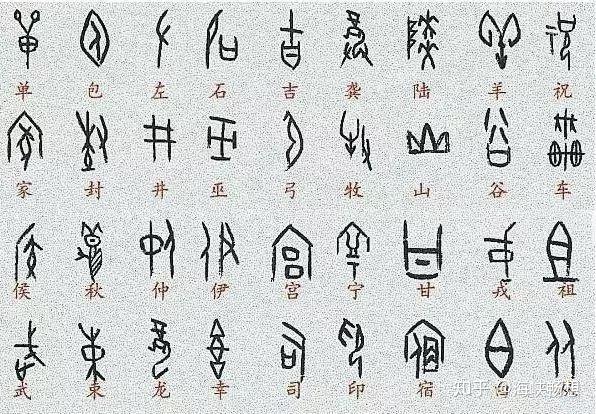 单 包 左 石 吉 龚 陆 羊 祝
家 封 井 巫 弓 牧 山 谷 车
侯 秋 仲 伊 宫 宁 甘 戎 祖
武 束 龙 幸 司 印 宿
知乎 @海峡畅想